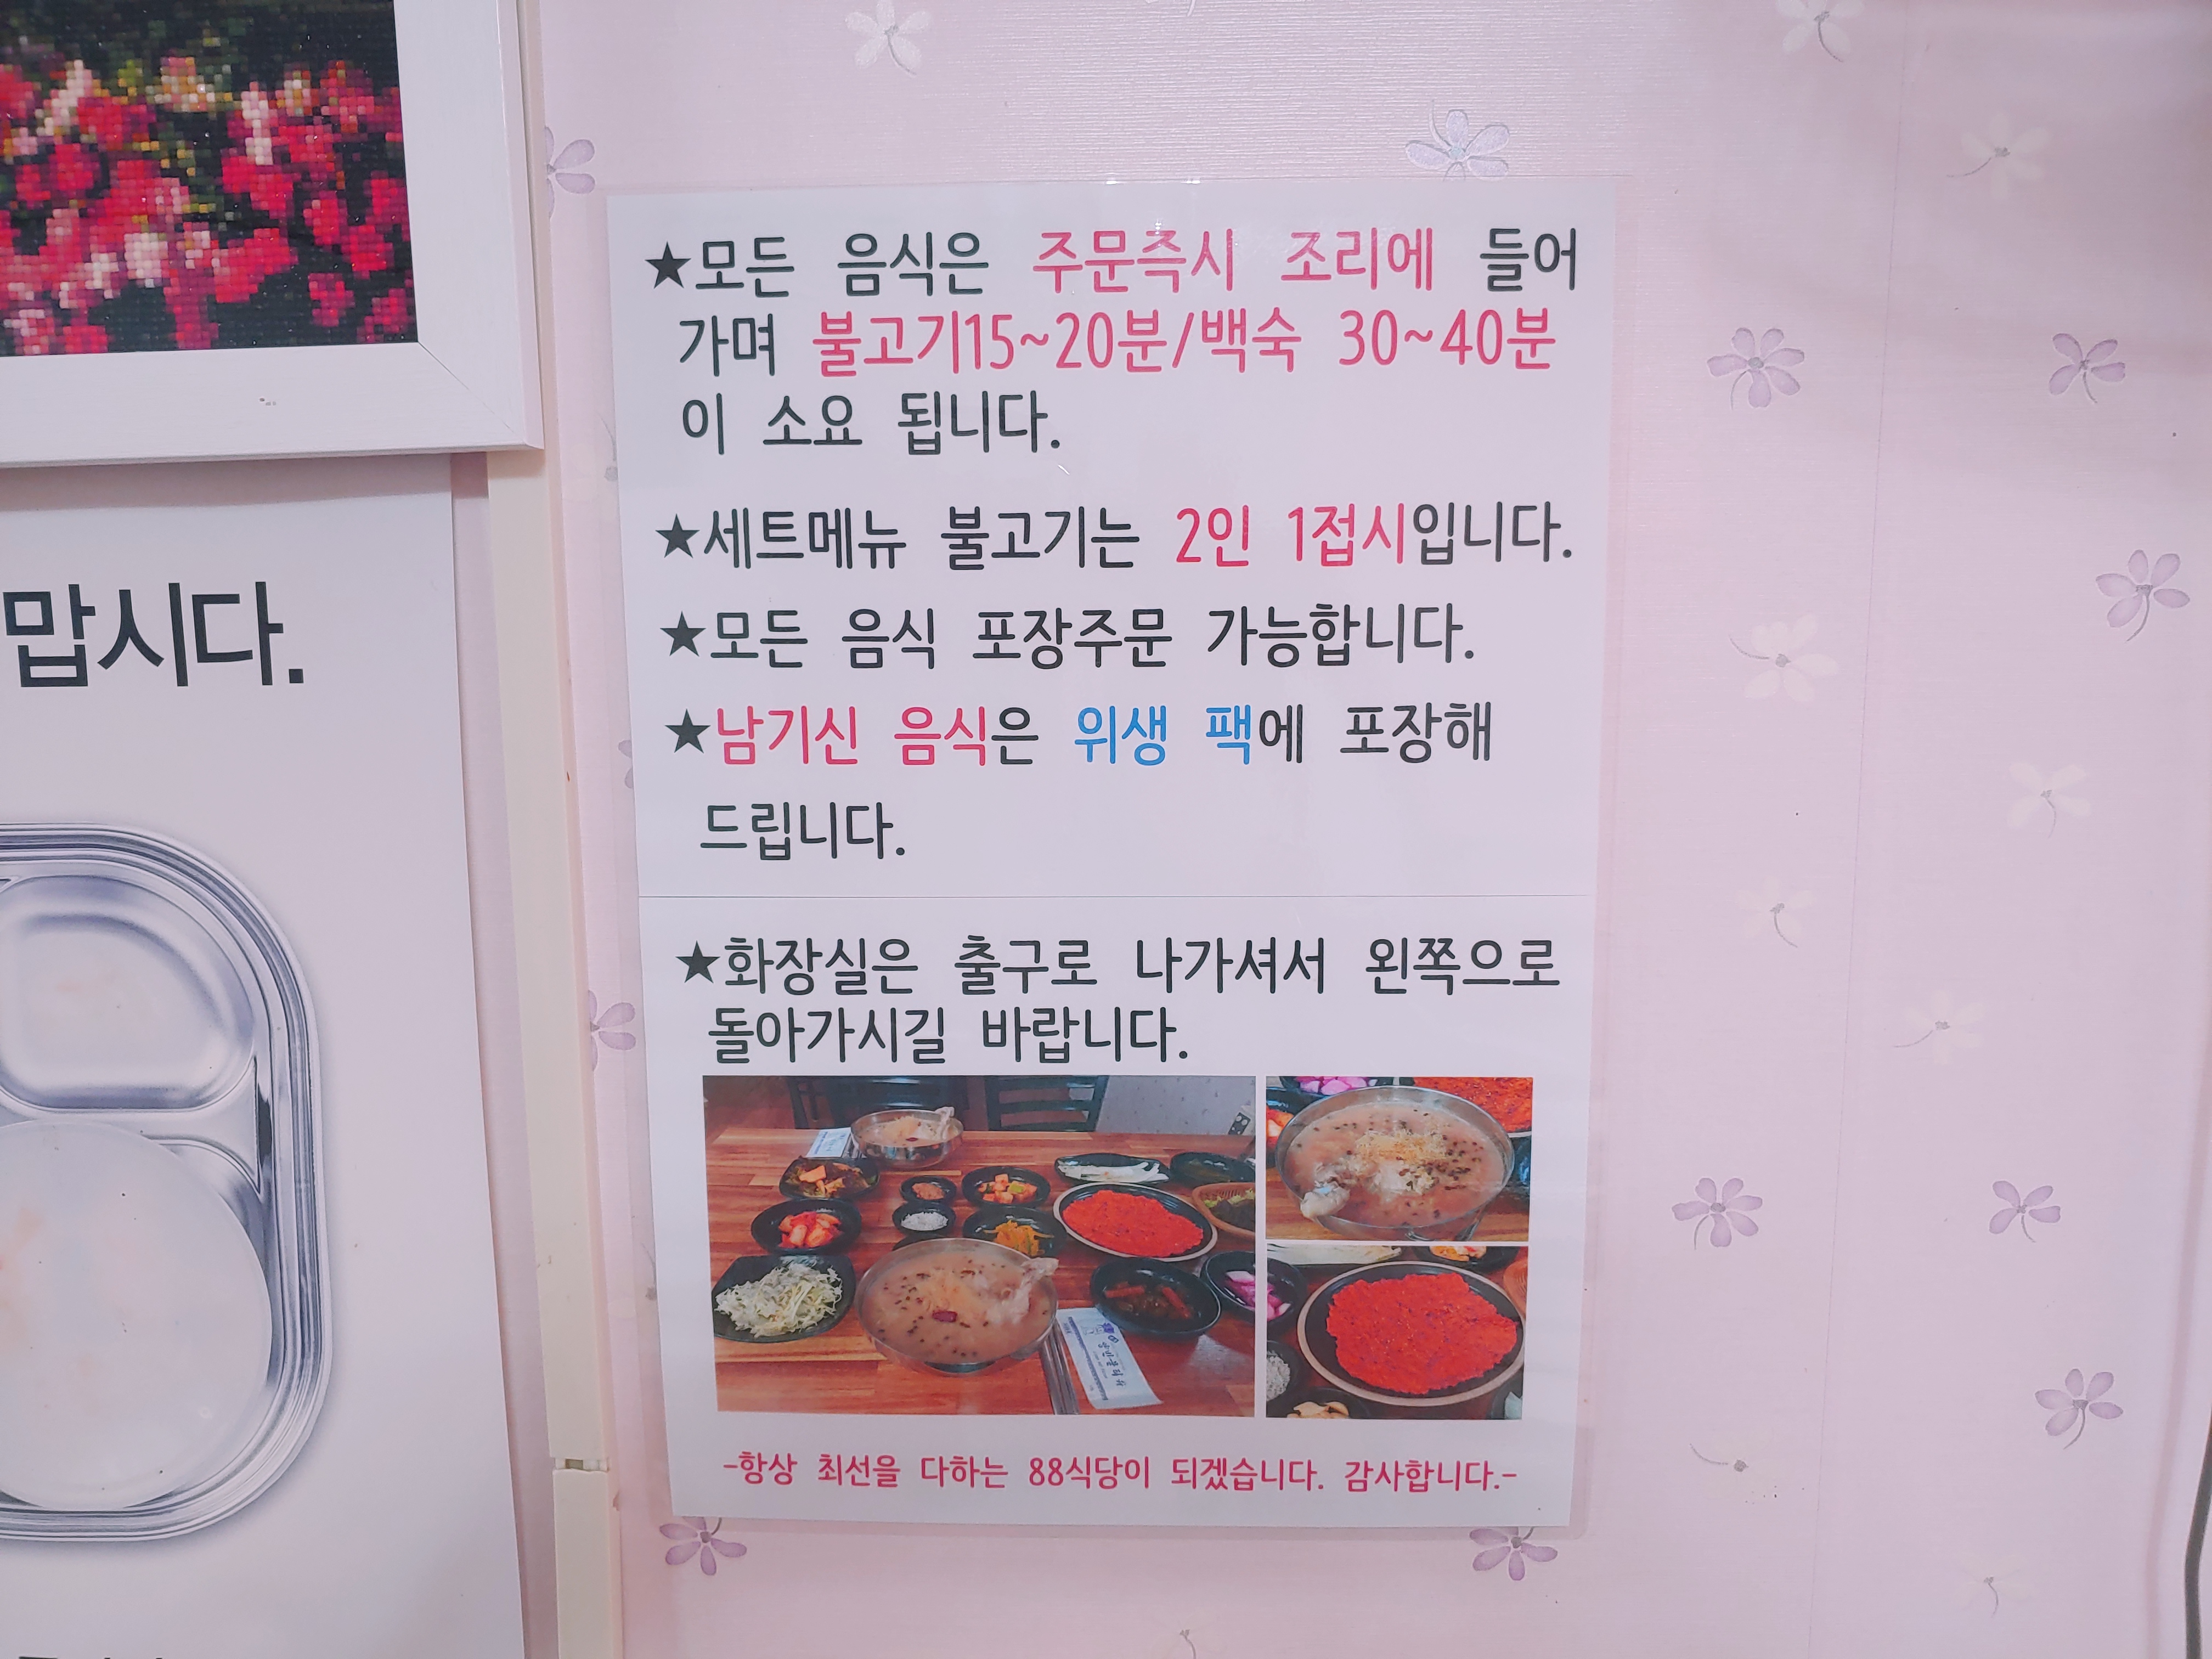 ★모든 음식은 주문즉시 조리에 들어
가며 불고기15~20분/백숙 30~40분
이 소요 됩니다.
★세트메뉴 불고기는 2인 1접시입니다.
★모든 음식 포장주문 가능합니다.
★남기신 음식은 위생 팩에 포장해
드립니다.
★화장실은 출구로 나가셔서 왼쪽으로
돌아가시길 바랍니다.
-항상 최선을 다하는 88식당이 되겠습니다. 감사합니다.-
맙시다.